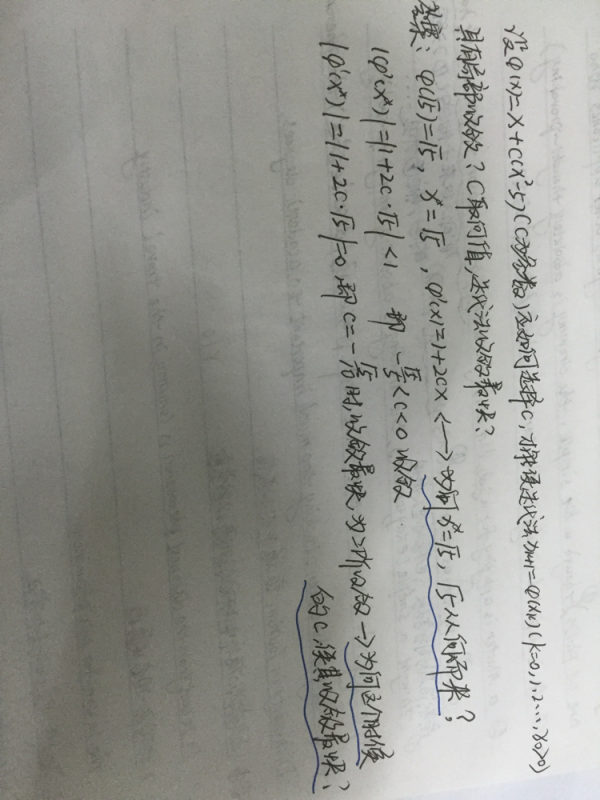 设φ(x)=x+C(x²-5)(C为常数)应如何选择C,才能使迭代法x_{k+1}=φ(x_k)(k=0,1,2…,x_0>0)
具有局部收敛?C取何值,迭代法收敛最快?
答案:φ(√5)=√5,x*=√5,φ'(x)=1+2Cx <—> 为何x*=√5,√5从何而来?
|φ'(x*)|=|1+2C·√5|<1 即 -√5/5<C<0 收敛
|φ'(x*)|=|1+2C·√5|=0,即C=-√5/10时,收敛最快,为2阶收敛 —> 为何这个时候
的C,使其收敛最快?